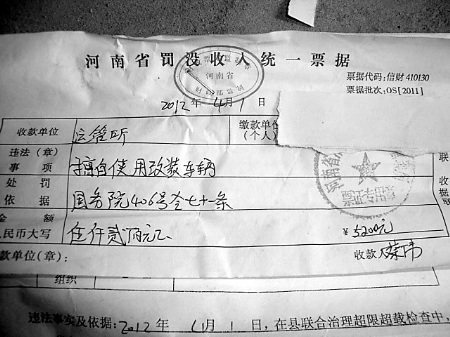 河南省罚没收入统一票据
河南省
票据代码：信财 410130
票据批次：OS[2011]
2012 年 4月 1 日
收款单位 运管所 缴款单位
(个人)
违法(章)
事项 擅自使用改装车辆
处罚
依据 国务院406号令七十一条
金额
人民币大写 伍仟贰佰元正 ¥5200元
款单位(章)： 收款人
组织
违法事实及依据：2012 年 4月 1 日，在县联合治理超限超载检查中，